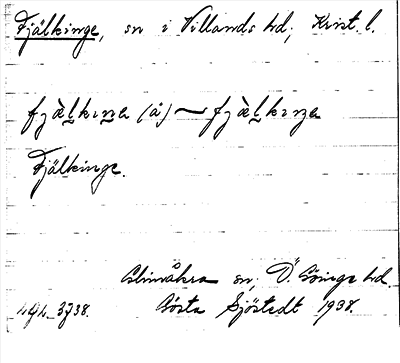 Fjälkinge, sn i Villands hd; Krist. l.
fjæ̀lkɩŋa (å) ~ fjæ̀lkɩŋa
Fjälkinge.
Glimåkra sn, Ö. Göinge hd.
Gösta Sjöstedt 1938.